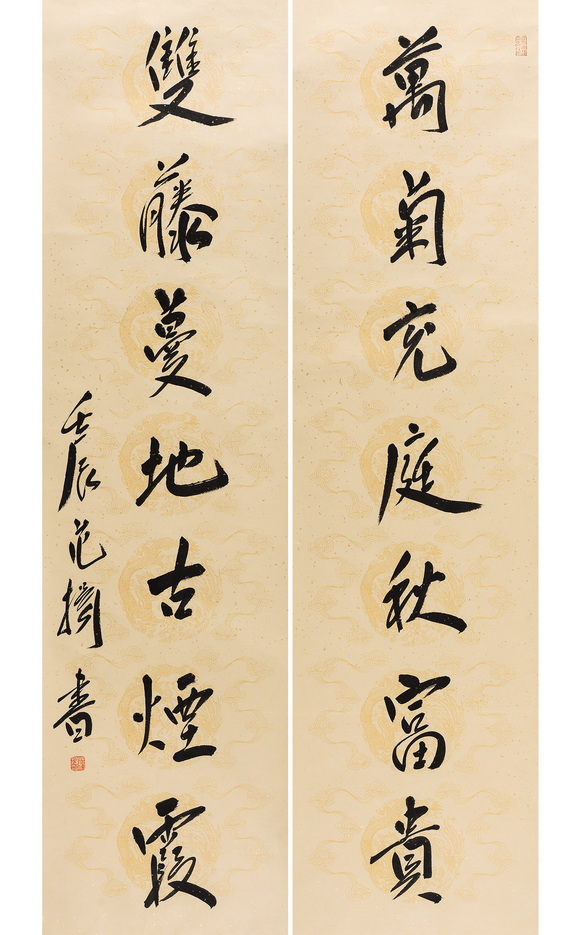 萬菊充庭秋富貴
雙藤蔓地古煙霞
壬辰范擣書